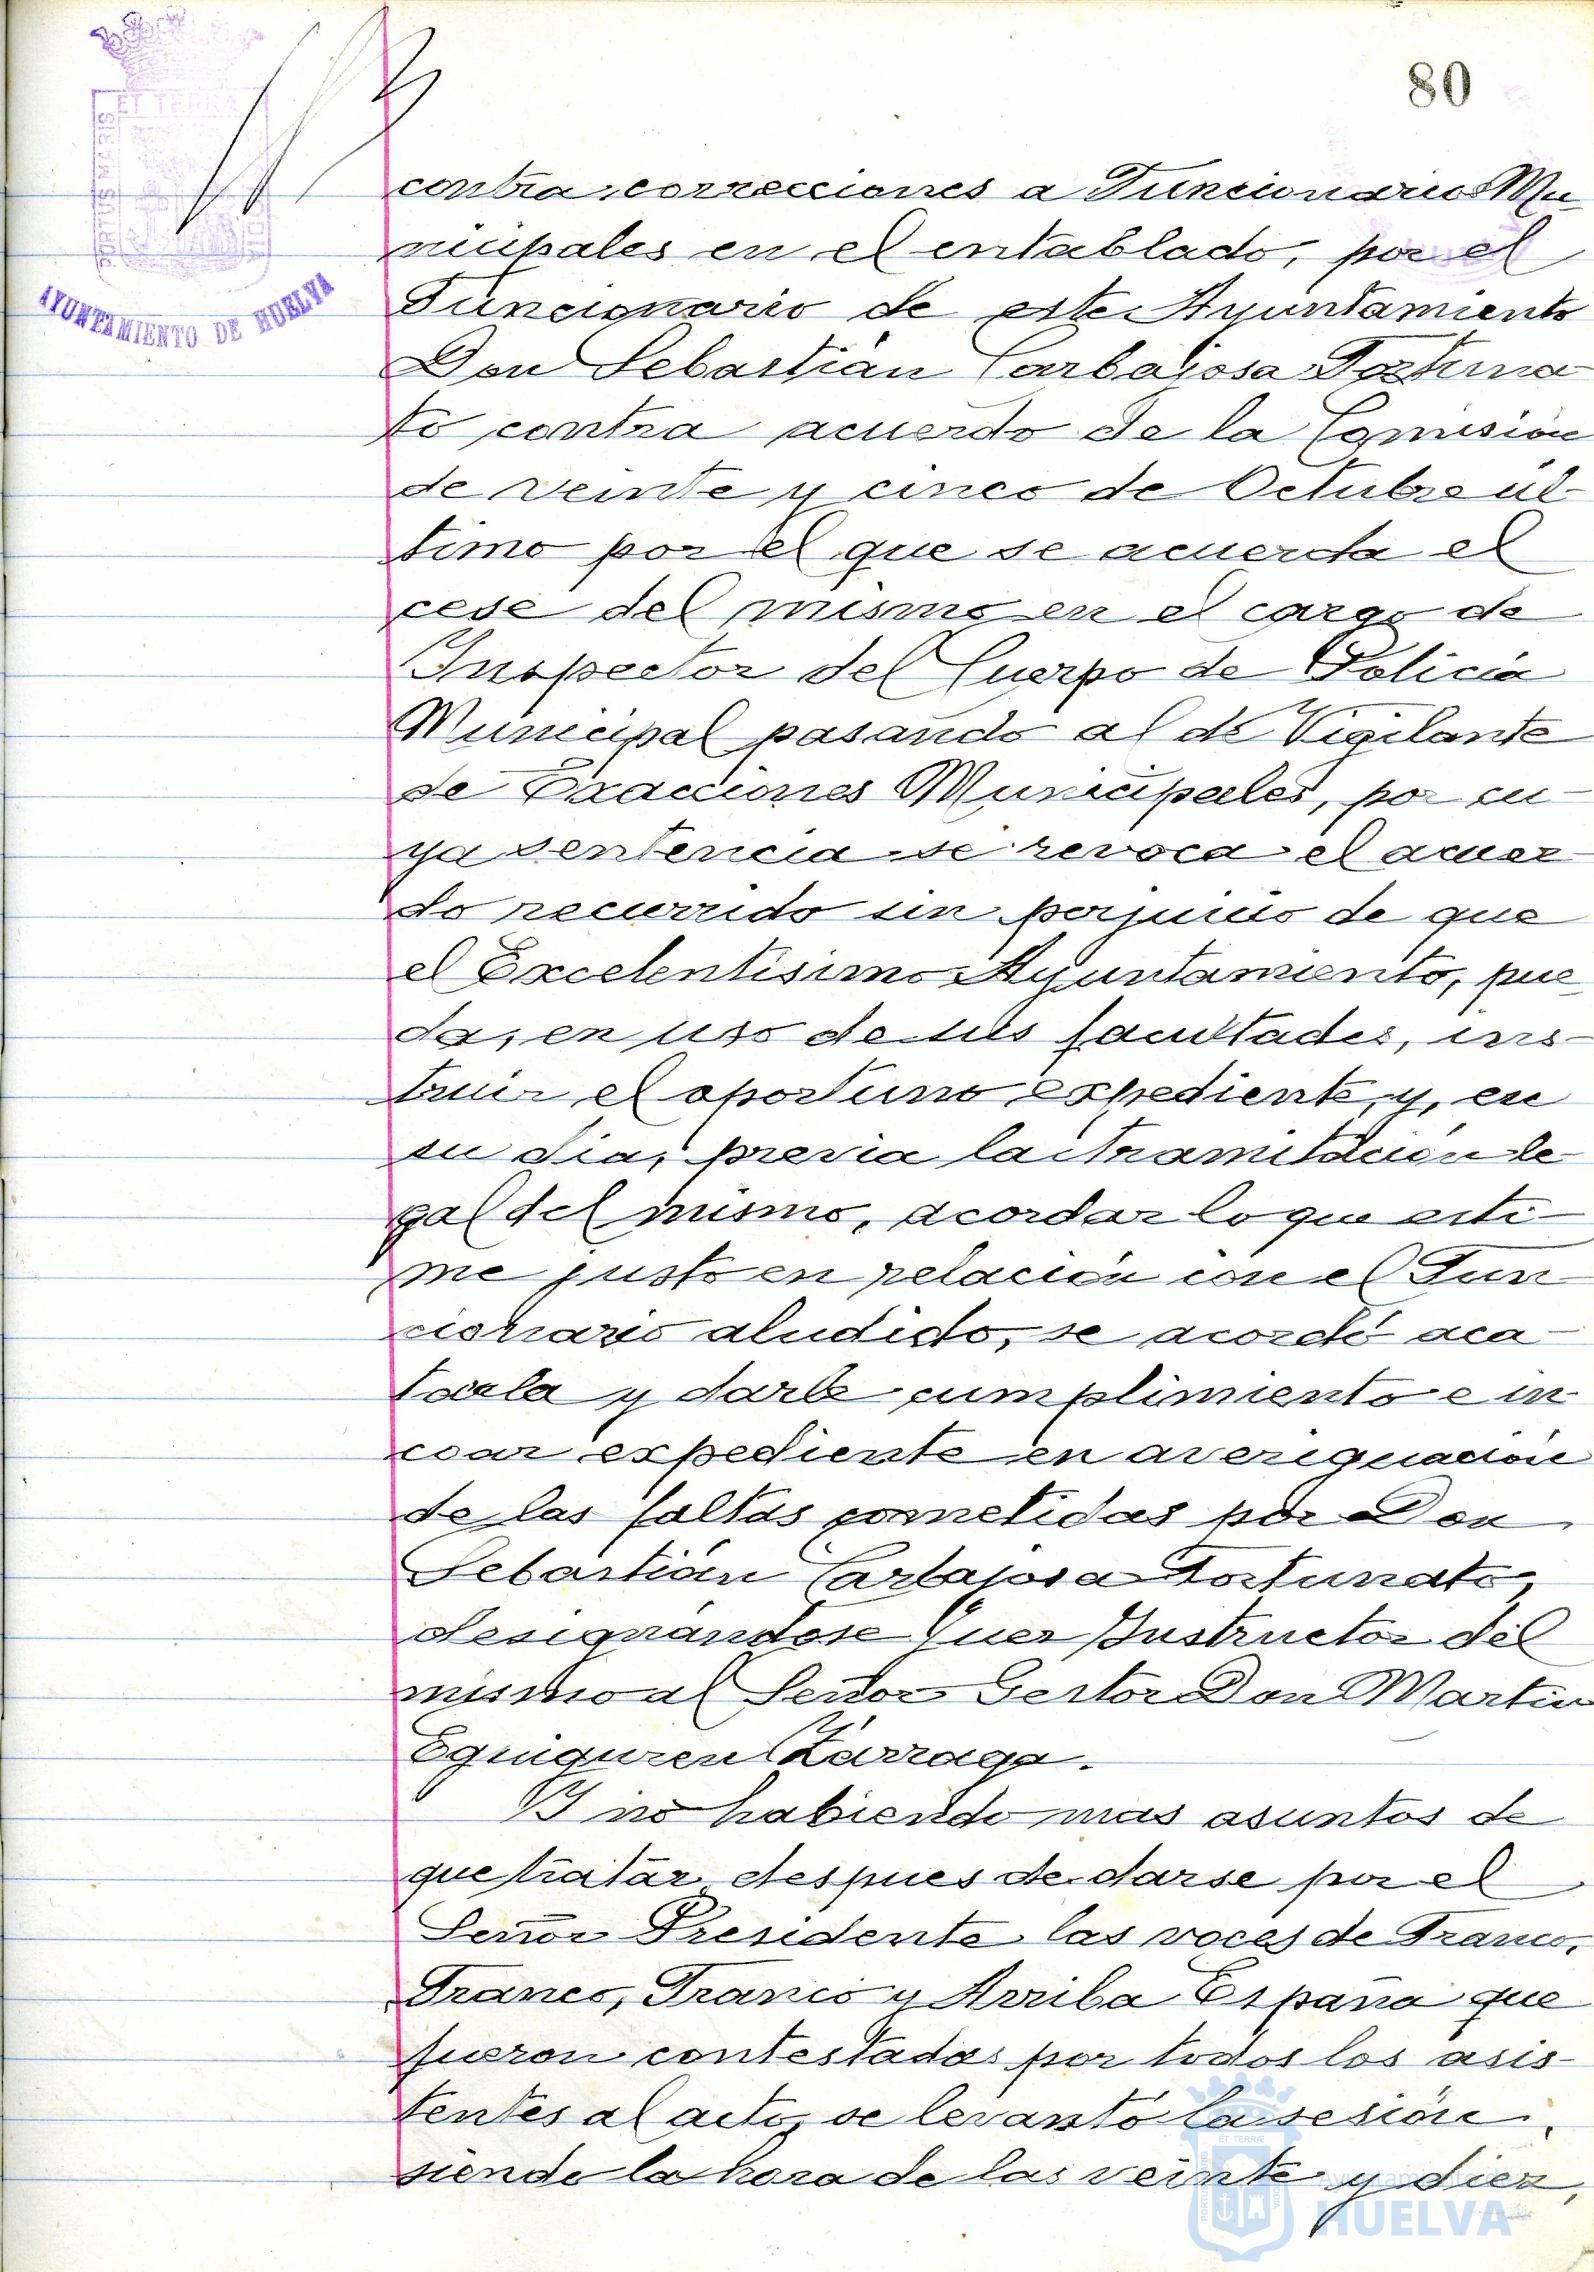 80
ET TERRÆ
PORTUS MARIS
CUSTODIA
AYUNTAMIENTO DE HUELVA
contra correcciones a Funcionarios Mu-
nicipales en el entablado, por el
Funcionario de este Ayuntamiento
Don Sebastián Carbajosa Fortuna-
to contra acuerdo de la Comisión
de veinte y cinco de Octubre úl-
timo por el que se acuerda el
cese del mismo en el cargo de
Inspector del Cuerpo de Policía
Municipal pasando al de Vigilante
de Exacciones Municipales, por cu-
ya sentencia se revoca el acuer-
do recurrido sin perjuicio de que
el Excelentísimo Ayuntamiento, pue-
da, en uso de sus facultades, ins-
truir el oportuno expediente, y, en
su día, previa la tramitación le-
gal del mismo, acordar lo que esti-
me justo en relación con el Fun-
cionario aludido, se acordó aca-
tarla y darle cumplimiento e in-
coar expediente en averiguación
de las faltas cometidas por Don
Sebastián Carbajosa Fortunato,
designándose Juez Instructor del
mismo al Señor Gestor Don Martín
Eguiguren Zárraga.
Y no habiendo mas asuntos de
que tratar despues de darse por el
Señor Presidente las voces de Franco,
Franco, Franco y Arriba España que
fueron contestadas por todos los asis-
tentes al acto, se levantó la sesión,
siendo la hora de las veinte y diez,
Ayuntamiento de
HUELVA